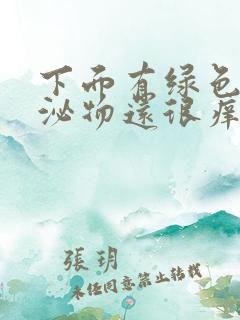 下而有绿色
泌物還很痒
張玥
未经同意禁止转载